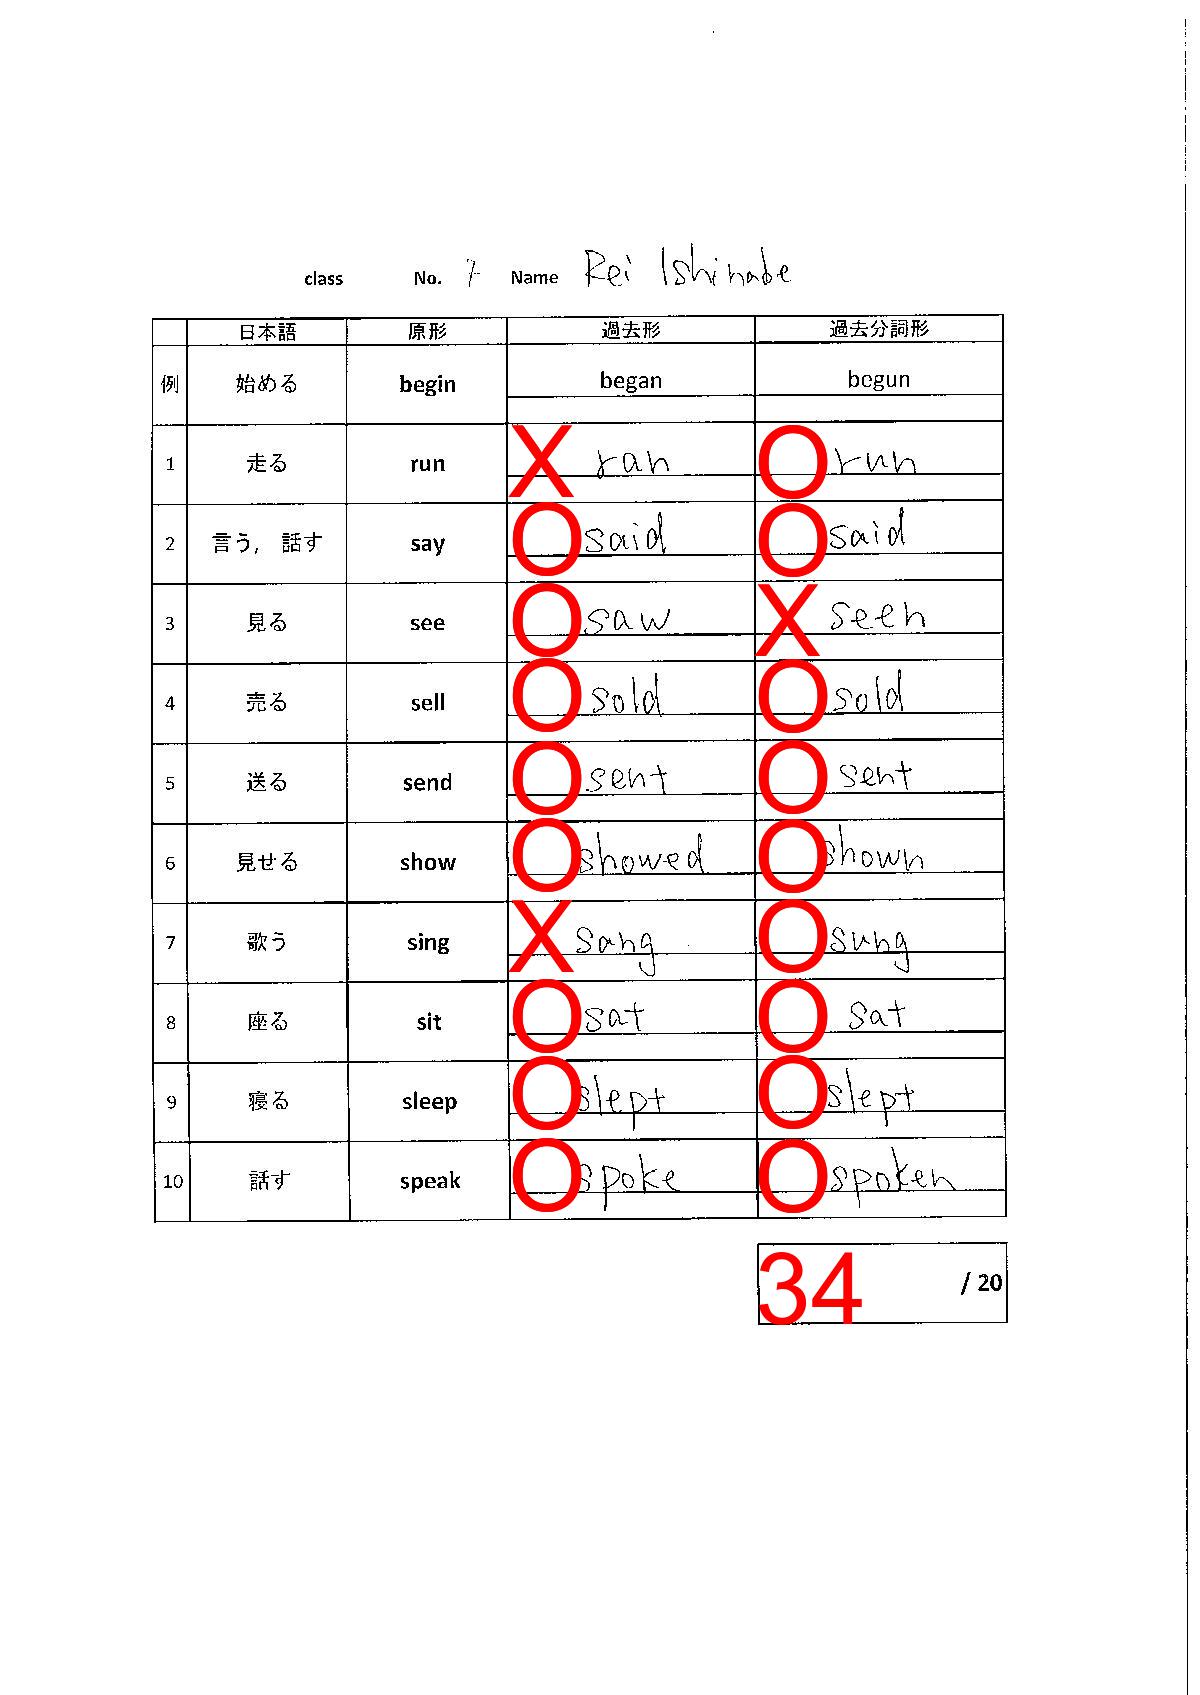 class No. 7 Name Rei Ishinabe
日本語 原形 過去形 過去分詞形
例 始める begin began begun
1 走る run X ran O run
2 言う, 話す say O said O said
3 見る see O saw X seen
4 売る sell O sold O sold
5 送る send O sent O sent
6 見せる show O showed O shown
7 歌う sing X sang O sung
8 座る sit O sat O sat
9 寝る sleep O slept O slept
10 話す speak O spoke O spoken
34 / 20